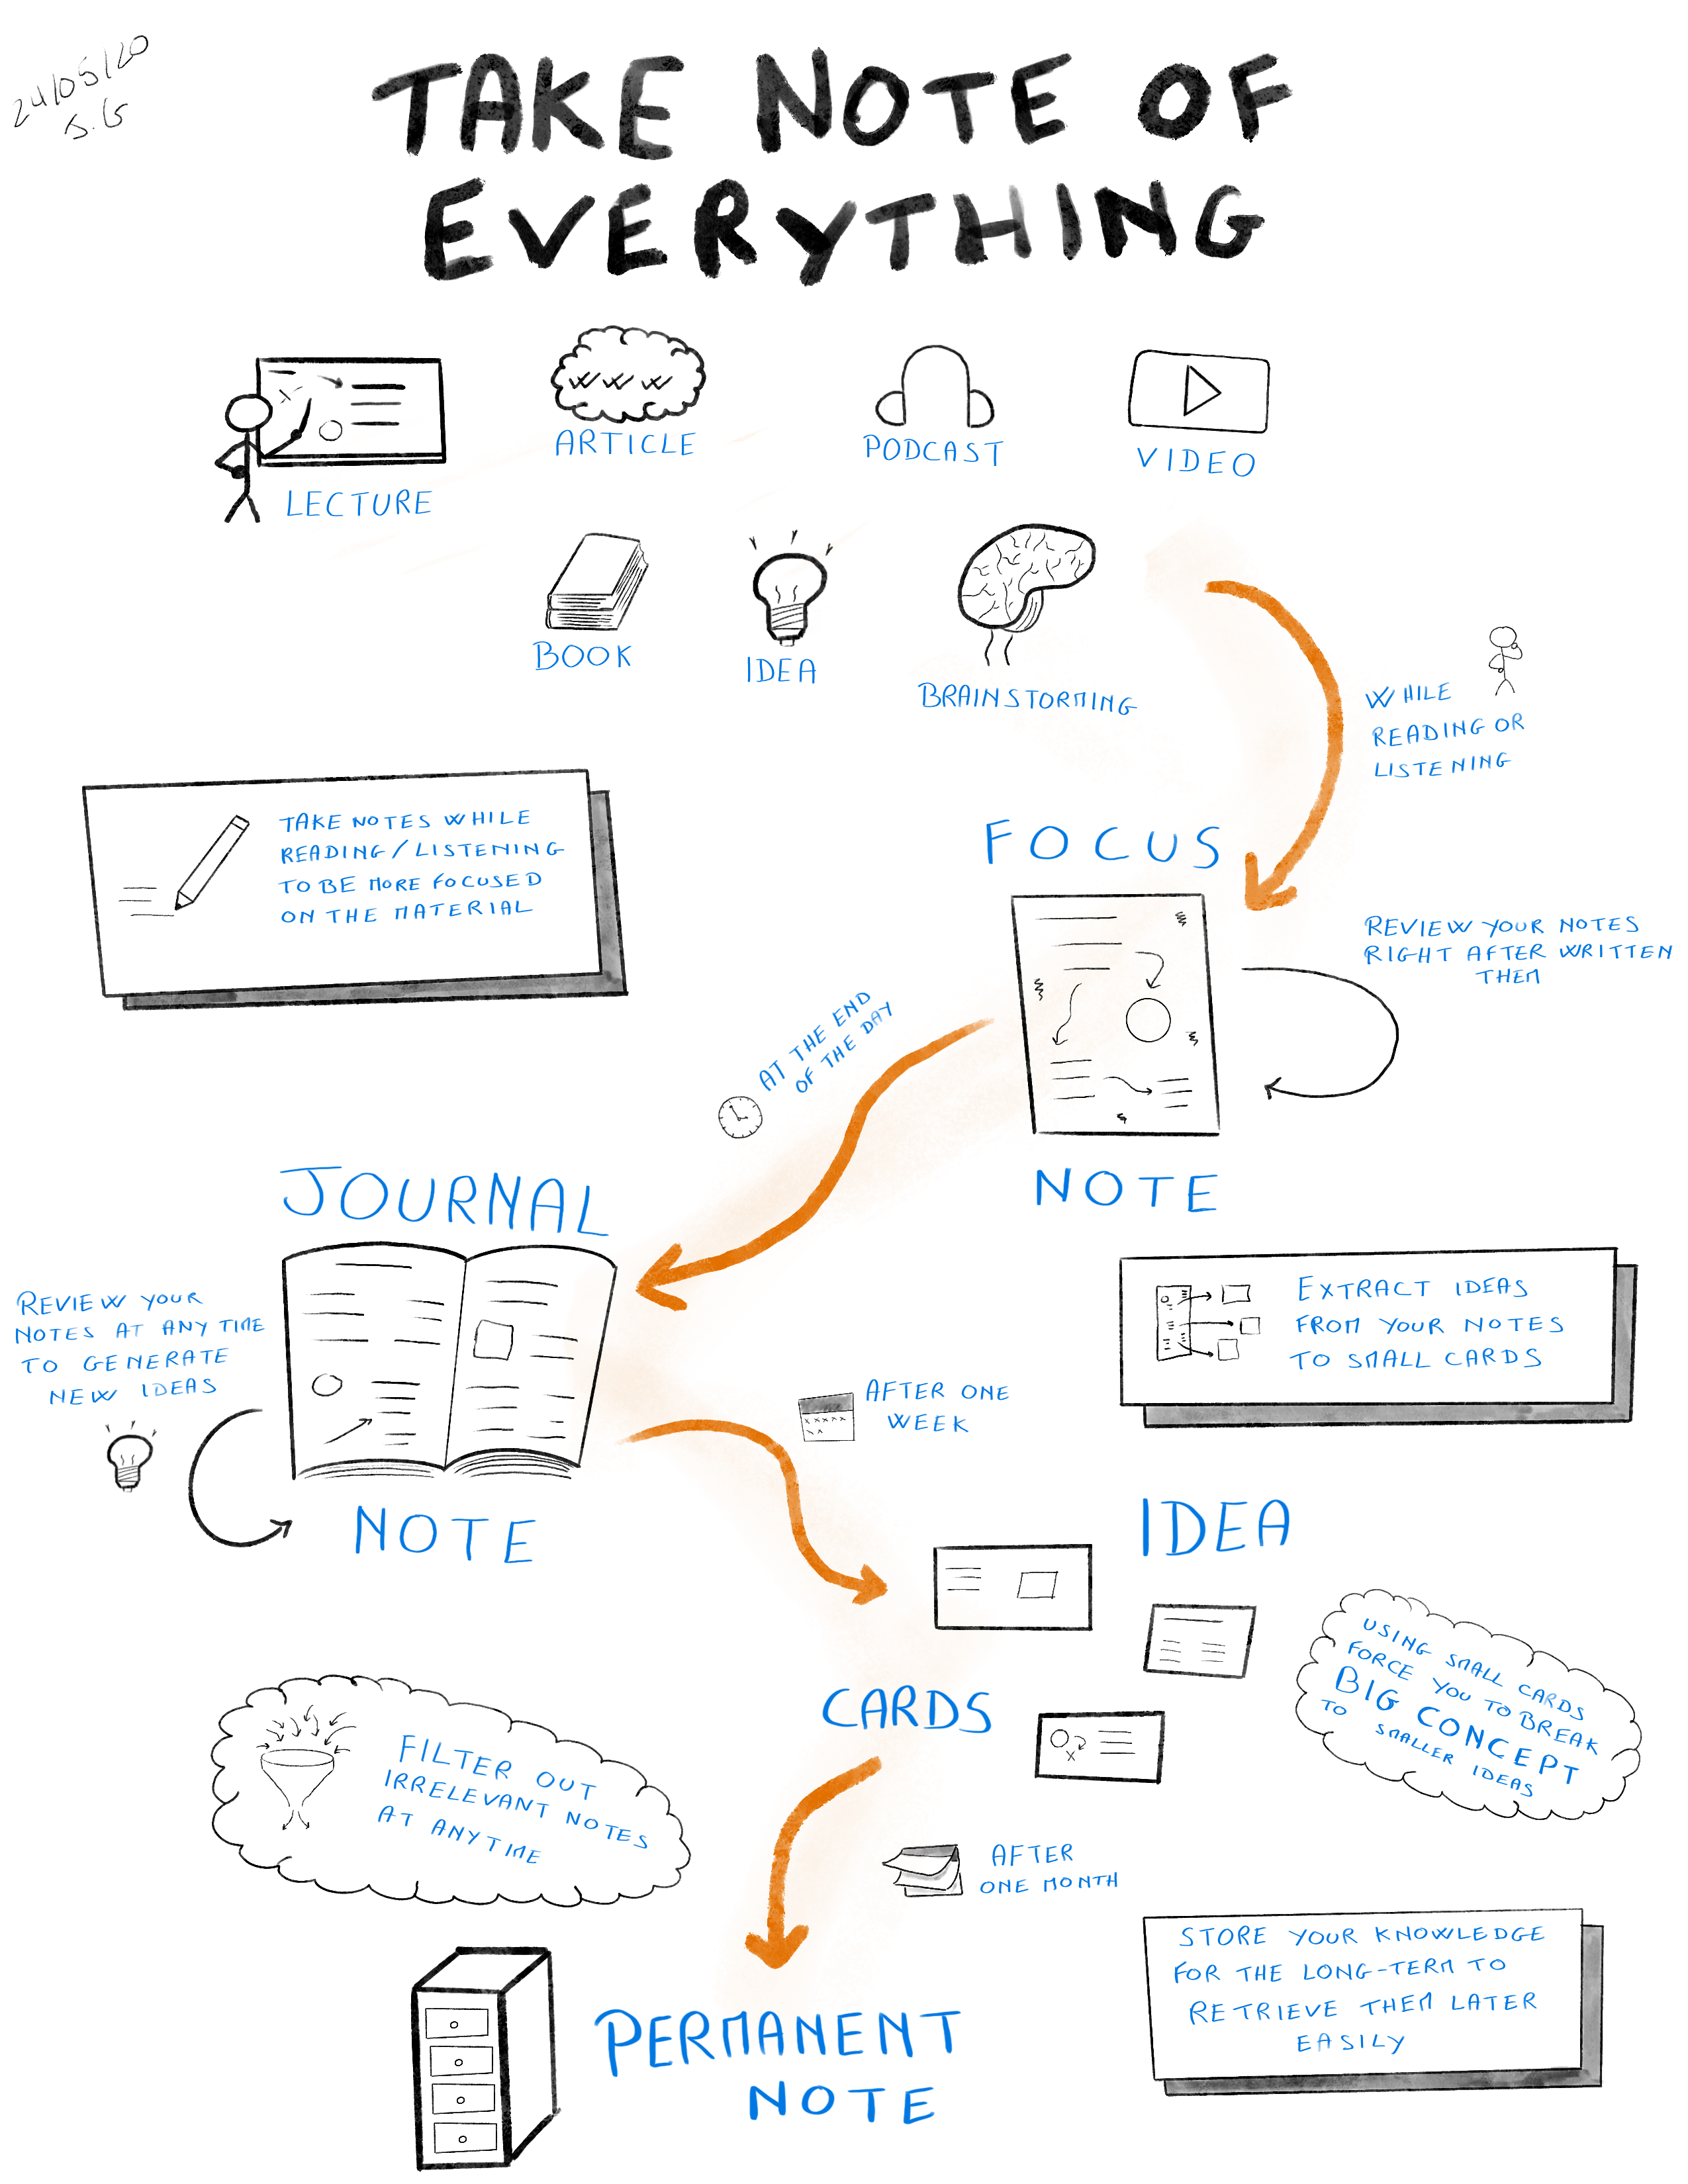 24/05/20
J.G
TAKE NOTE OF
EVERYTHING
LECTURE
ARTICLE
PODCAST
VIDEO
BOOK
IDEA
BRAINSTORMING
WHILE
READING OR
LISTENING
TAKE NOTES WHILE
READING/LISTENING
TO BE MORE FOCUSED
ON THE MATERIAL
FOCUS
NOTE
REVIEW YOUR NOTES
RIGHT AFTER WRITTEN
THEM
AT THE END
OF THE DAY
JOURNAL
NOTE
REVIEW YOUR
NOTES AT ANY TIME
TO GENERATE
NEW IDEAS
EXTRACT IDEAS
FROM YOUR NOTES
TO SMALL CARDS
AFTER ONE
WEEK
IDEA
CARDS
USING SMALL CARDS
FORCE YOU TO BREAK
BIG CONCEPT
TO SMALLER IDEAS
FILTER OUT
IRRELEVANT NOTES
AT ANYTIME
AFTER
ONE MONTH
STORE YOUR KNOWLEDGE
FOR THE LONG-TERM TO
RETRIEVE THEM LATER
EASILY
PERMANENT
NOTE